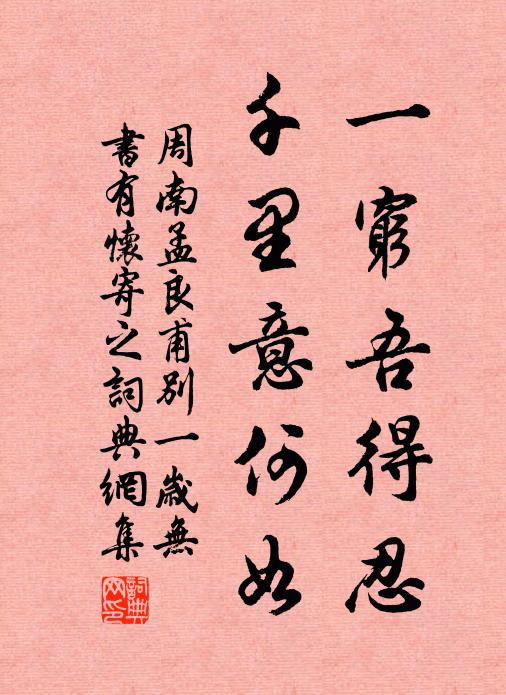 一窮吾得忍
千里意何如
周南孟良甫別一歲無
書有懷寄之詞典網集
詞典
网印